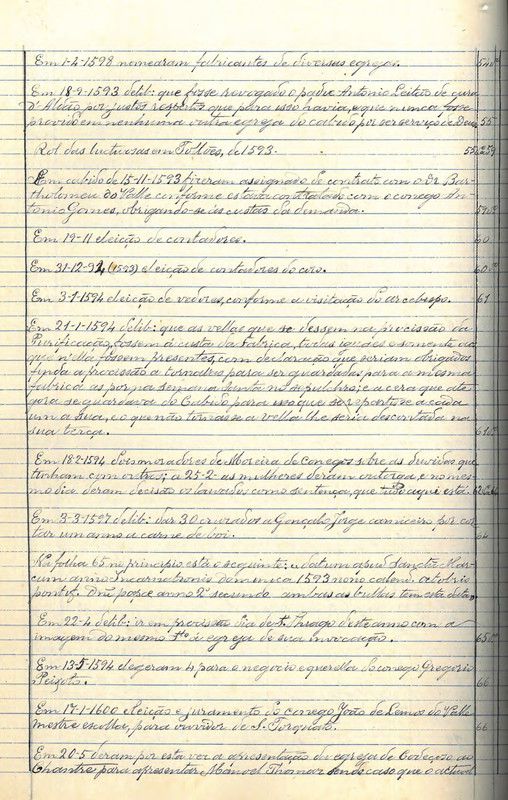 Em 1-4-1598 nomearam fabricantes de diversas egrejas. 54vº
Em 18-9-1593 delib: que fosse revogado o padre Antonio Leitão de cura
d'Aldão por justos respeitos que para isso havia, e que nunca fosse
provido em nenhuma outra egreja do cabido por ser serviço de Deus 55
Rol das luctuosas em Tolões, de 1593.
Em cabido de 15-11-1593 fizeram assignado de contrato com o Dr Bar-
tholomeu do Valle conforme estava contratado com o conego An-
tonio Gomes, obrigando-se ás custas da demanda. 59vº
Em 19-11 eleição de contadores. 60
Em 31-12-92, (1593) eleição de contadores do coro. 60vº
Em 3-1-1594 eleição de vedores, conforme a visitação do arcebispo. 61
Em 21-1-1594 delib: que as vellas que se dessem na procissão da
Purificação, fossem á custa da fabrica, todas iguaes e somente aos
que n'ella fossem presentes, com declaração que seriam obrigados
finda a procissão a tornal-as para ser guardadas para a mesma
fabrica as pôr na semana santa no sepulchro; e a cera que até
gora se guardava do Cabido para isso que se reparta e a cada
um a sua, e o que não tornasse a vella lhe seria descontada na
sua terça. 61vº
Em 18-2-1594 dois moradores de Moreira de Conegos sobre as duvidas que
tinham com outros; a 25-2- as mulheres deram outorga, e no mes-
mo dia deram decisão os louvados como sentença, que tudo aqui está.
Em 3-3-1597 delib: dar 30 cruzados a Gonçalo Jorge carniceiro por cor-
tar um anno a carne de boi. 64
Na folha 65 no principio está o seguinte: datum apud Sanctum Mar-
cum anno Incarnationis dominica 1593 nono calend. octobris
pontif. Dni papæ anno 2º secundo ambas as bullas tem esta data.
Em 22-4 delib: ir em procissão dia de S. Thiago deste anno com a
imagem do mesmo Sto á egreja de sua invocação. 65vº
Em 13-5-1594 elegeram 4 para o negocio e querella do conego Gregorio
Peixoto. 66
Em 17-1-1600 eleição e juramento do conego João de Lemos do Valle
mestre escolla, para ouvidor de S. Torquato. 66
Em 20-5 deram por esta vez a apresentação da egreja de Codeçoso ao
Chantre para apresentar Manoel Thomaz sendo caso que o actual